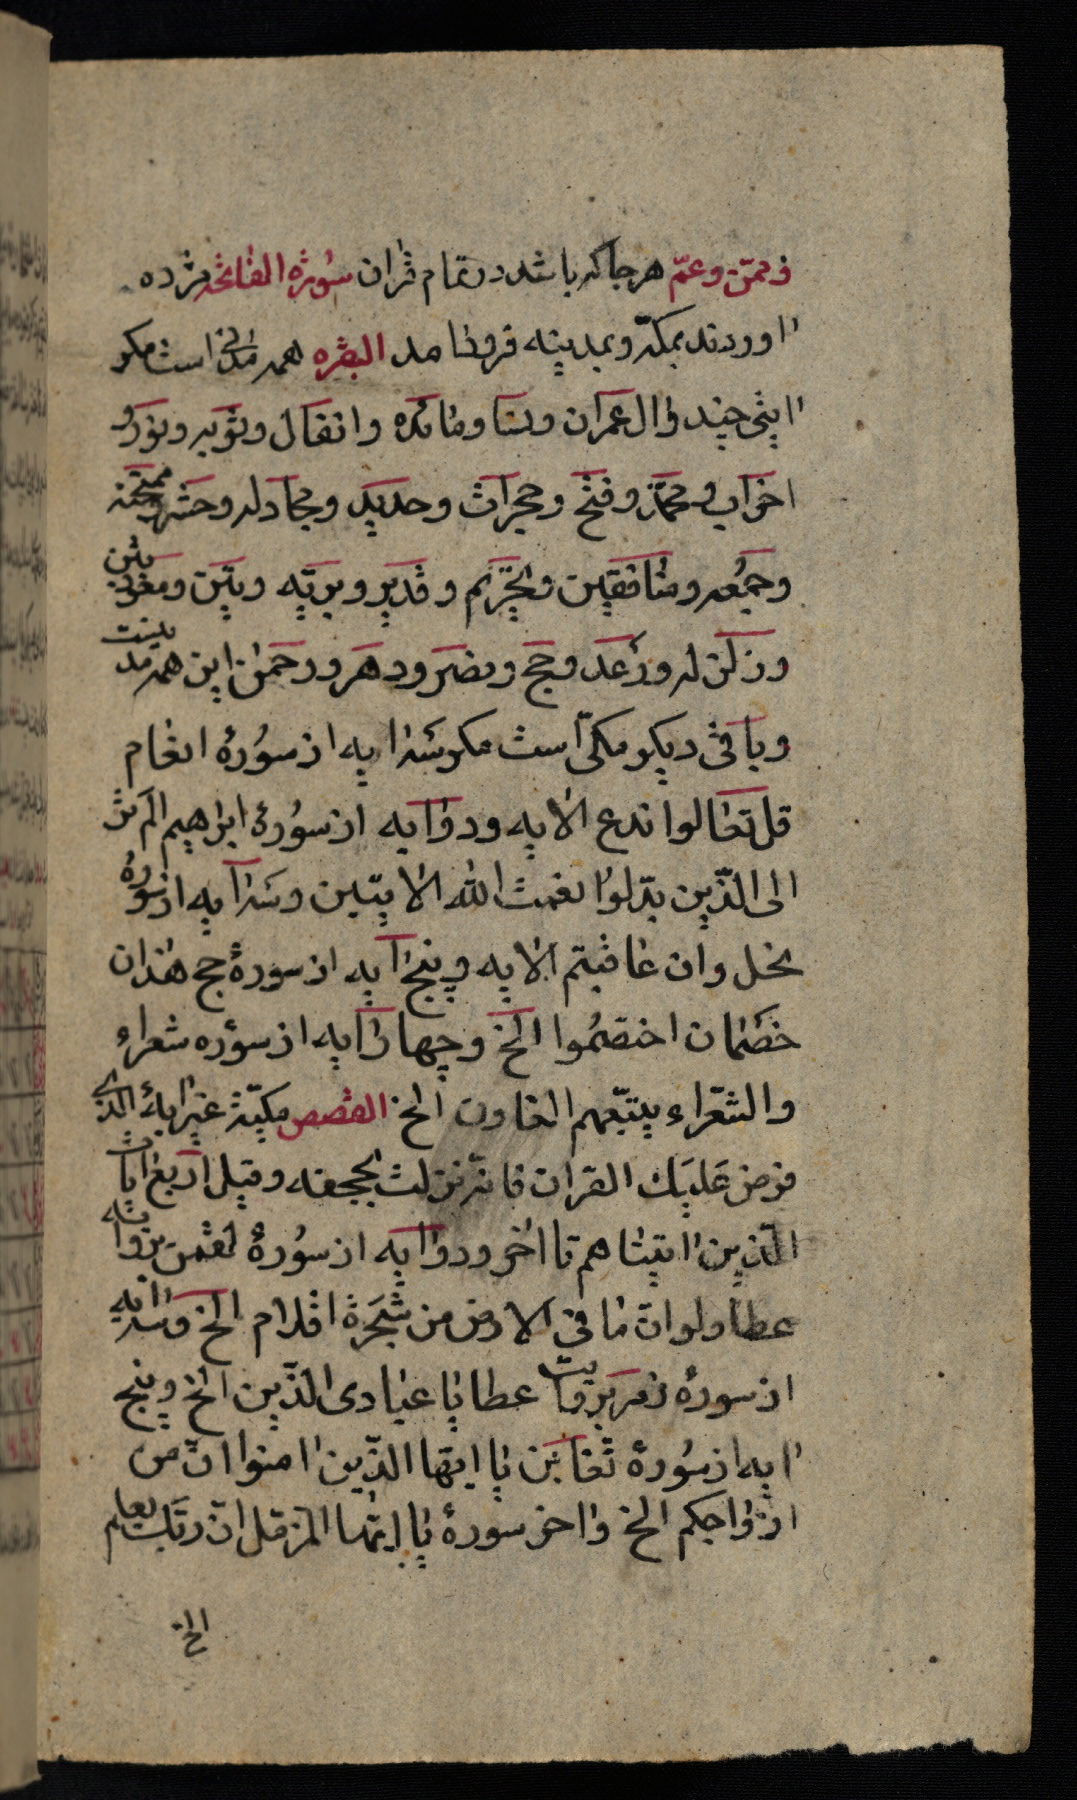 فممّن وعمّ هرجا که باشد در تمام قران سورة الفاتحه مژده
اوردند بمکّه وبمدینه فرود امد البقره همه مدنی است مکر
ایتی چند وال عمران ونسا ومائده وانفال وتوبه ونور و
احزاب و محمّد وفتح وحجرات وحدید ومجادله وحشر وممتحنه
وجمعه ومنافقین والتحریم وقدیر وبریّه وتین ومعوذتین
وزلزله ورعد وحج ونصر ودهر ورحمن این همه مدینست
وباقی دیکر مکّی است مکر سه ایه از سورۀ انعام
قل تعالوا ندع الایه ودو ایه از سورۀ ابراهیم الم تر
الی الذین بدّلوا نعمت الله الایتین وسه ایه از سورۀ
نحل وان عاقبتم الایه وپنج ایه از سورۀ حج هذان
خصمان اختصموا الخ وچهار ایه از سوره شعراء
والشعراء یتبّعهم الغاون الخ القصص مکیّة غیر ایة الذی
فرض علیک القران فانه نزلت بجحفه وقیل اربع ایات
الذین اتیناهم تا اخر ودو ایه از سورۀ لقمن بروایة
عطا ولو انّ ما فی الارض من شجرة اقلام الخ وسه ایه
از سورۀ زمر بروایت عطا یا عبادی الذین الخ وپنج
ایه از سورۀ تغابن یا ایها الذین امنوا انّ من
ازواجکم الخ واخر سورۀ یا ایها المزمّل انّ ربّک یعلم
الخ